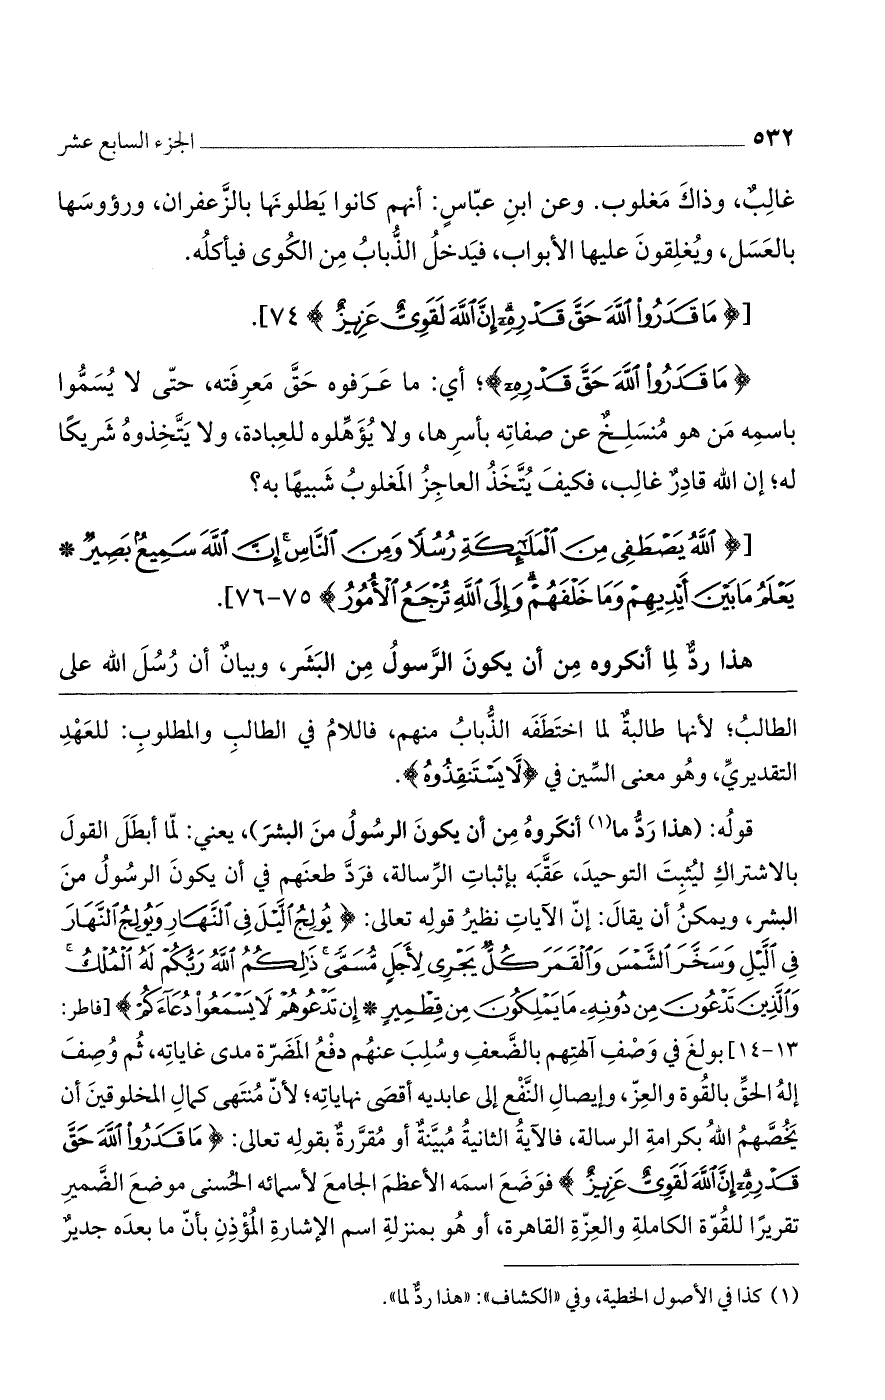 ٥٣٢ الجزء السابع عشر
غالِبٌ، وذاكَ مَغلوب. وعن ابنِ عبّاسٍ: أنهم كانوا يَطلونَها بالزَّعفران، ورؤوسَها
بالعَسَل، ويُغلِقونَ عليها الأبواب، فيَدخلُ الذُّبابُ مِن الكُوى فيأكلُه.
[﴿ مَا قَدَرُوا۟ ٱللَّهَ حَقَّ قَدْرِهِۦٓ إِنَّ ٱللَّهَ لَقَوِىٌّ عَزِيزٌ ﴾ ٧٤].
﴿ مَا قَدَرُوا۟ ٱللَّهَ حَقَّ قَدْرِهِۦٓ﴾؛ أي: ما عَـرَفوه حَقَّ مَعرِفَته، حتّى لا يُسَمُّوا
باسمِه مَن هو مُنسَلِـخٌ عن صفاتِه بأسرِها، ولا يُؤَهِّلوه للعِبادة، ولا يَتَّخِذوهُ شَريكًا
له؛ إن الله قادِرٌ غالِب، فكيفَ يُتَّخَذُ العاجِزُ المَغلوبُ شَبيهًا به؟
[﴿ ٱللَّهُ يَصْطَفِى مِنَ ٱلْمَلَٰٓئِكَةِ رُسُلًا وَمِنَ ٱلنَّاسِ ۚ إِنَّ ٱللَّهَ سَمِيعٌۢ بَصِيرٌ *
يَعْلَمُ مَا بَيْنَ أَيْدِيهِمْ وَمَا خَلْفَهُمْ ۗ وَإِلَى ٱللَّهِ تُرْجَعُ ٱلْأُمُورُ ﴾ ٧٥-٧٦].
هذا ردٌّ لِما أنكروه مِن أن يكونَ الرَّسولُ مِن البَشَر، وبيانٌ أن رُسُلَ الله على
الطالبُ؛ لأنها طالبةٌ لما اختَطَفَه الذُّبابُ منهم، فاللامُ في الطالبِ والمطلوبِ: للعَهْدِ
التقديريِّ، وهُو معنى السِّين في ﴿لَّا يَسْتَنقِذُوهُ﴾.
قولُه: (هذا رَدُّ ما(١) أنكَروهُ مِن أن يكونَ الرسُولُ منَ البشرَ)، يعني: لمّا أبطَلَ القولَ
بالاشتراكِ ليُثبِتَ التوحيدَ، عَقَّبَه بإثباتِ الرِّسالة، فرَدَّ طعنَهم في أن يكونَ الرسُولُ منَ
البشر، ويمكنُ أن يقالَ: إنّ الآياتِ نظيرُ قولِه تعالى: ﴿ يُولِجُ ٱلَّيْلَ فِى ٱلنَّهَارِ وَيُولِجُ ٱلنَّهَارَ
فِى ٱلَّيْلِ وَسَخَّرَ ٱلشَّمْسَ وَٱلْقَمَرَ كُلٌّ يَجْرِى لِأَجَلٍ مُّسَمًّى ۚ ذَٰلِكُمُ ٱللَّهُ رَبُّكُمْ لَهُ ٱلْمُلْكُ ۚ
وَٱلَّذِينَ تَدْعُونَ مِن دُونِهِۦ مَا يَمْلِكُونَ مِن قِطْمِيرٍ * إِن تَدْعُوهُمْ لَا يَسْمَعُوا۟ دُعَآءَكُمْ ﴾ [فاطر:
١٣-١٤] بولغَ في وَصْفِ آلهتِهم بالضَّعفِ وسُلِبَ عنهُم دفْعُ المَضَرّة مدى غاياتِه، ثُم وُصِفَ
إلهُ الحقِّ بالقُوة والعِزّ، وإيصالِ النَّفْع إلى عابديه أقصَى نهاياتِه؛ لأنّ مُنتَهى كمالِ المخلوقينَ أن
يَخُصَّهمُ اللهُ بكرامةِ الرسالة، فالآيةُ الثانيةُ مُبيَّنةٌ أو مُقرَّرةٌ بقولِه تعالى: ﴿ مَا قَدَرُوا۟ ٱللَّهَ حَقَّ
قَدْرِهِۦٓ إِنَّ ٱللَّهَ لَقَوِىٌّ عَزِيزٌ ﴾ فوَضَعَ اسمَه الأعظمَ الجامعَ لأسمائه الحُسنى موضعَ الضَّميرِ
تقريرًا للقُوّة الكاملةِ والعِزّةِ القاهرة، أو هُو بمنزلةِ اسم الإشارةِ المُؤْذِنِ بأنّ ما بعدَه جديرٌ
(١) كذا في الأصول الخطية، وفي «الكشاف»: «هذا ردٌّ لما».